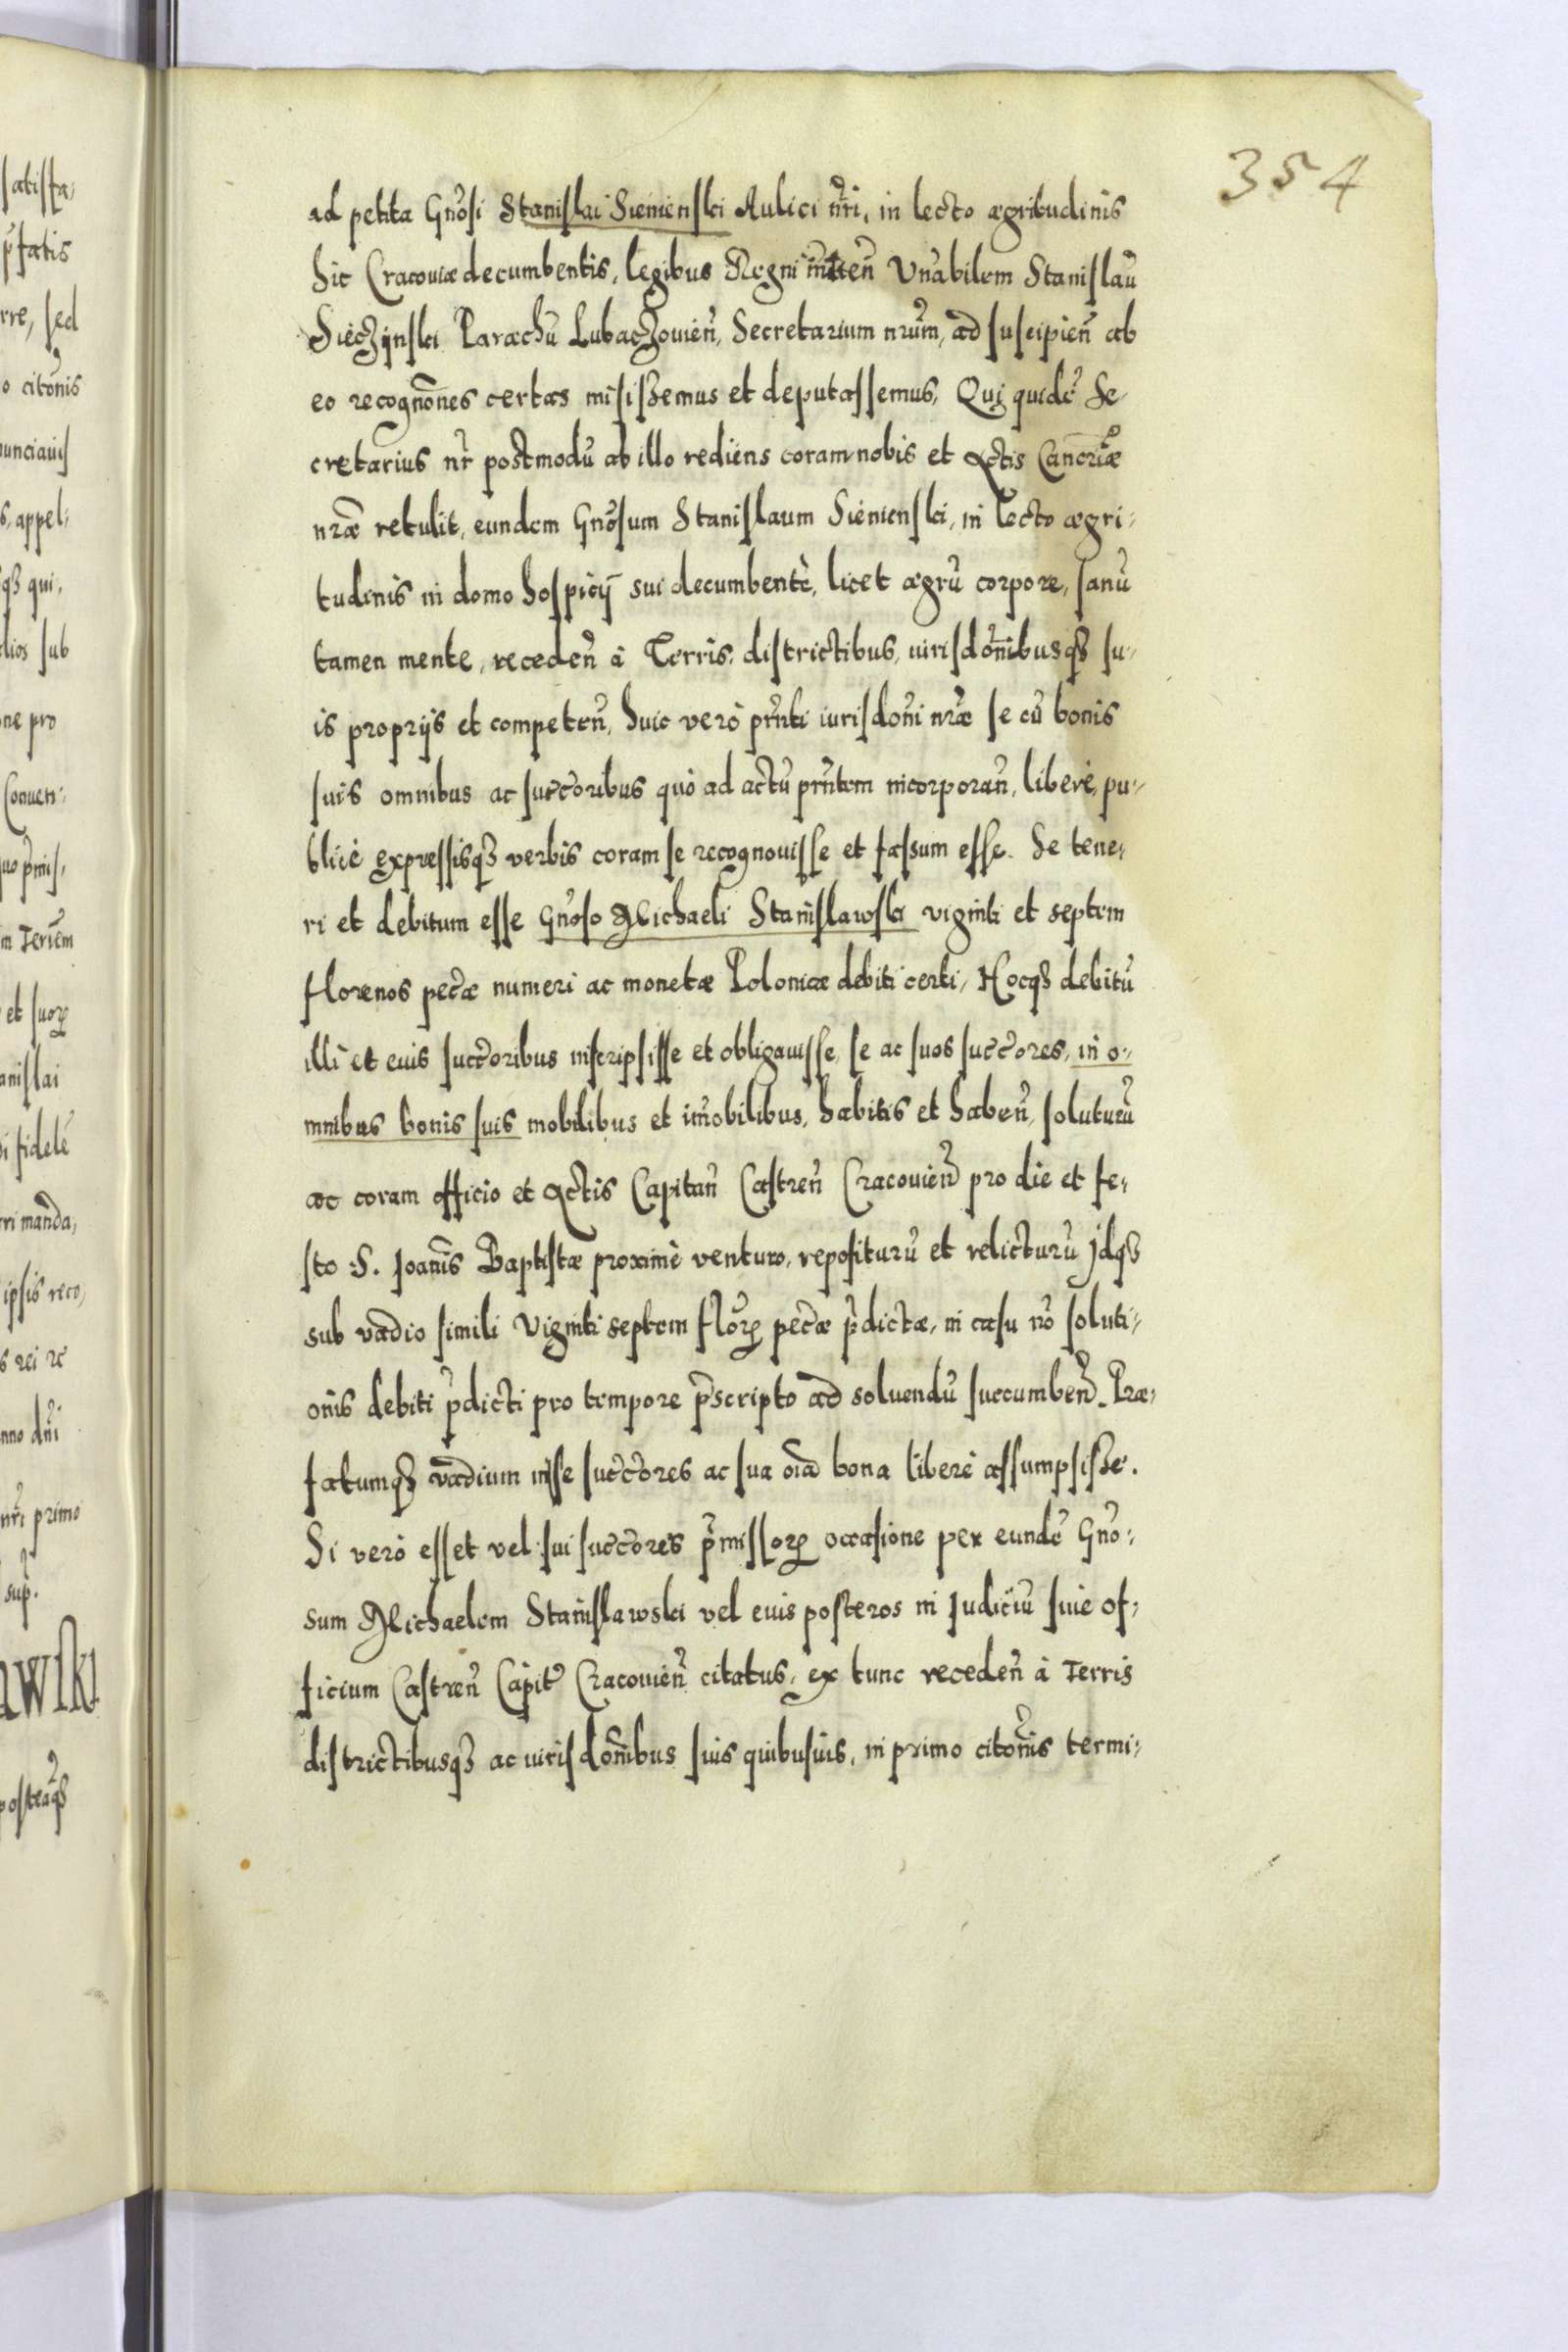 354
ad petita Gnosi Stanislai Sienienski Aulici nri, in lecto ægritudinis
hic Cracoviæ decumbentis, legibus Regni Vnabilem Stanislau
Sieczÿnski Parochu Lubaczouien, Secretarium nrum, ad suscipien ab
eo recognones certas misissemus et deputassemus, Qui quide Se-
cretarius nr postmodu ab illo rediens coram nobis et Actis Cancriæ
nræ retulit, eundem Gnosum Stanislaum Sienienski, in lecto ægri-
tudinis in domo hospicij sui decumbente, licet ægru corpore, sanu
tamen mente, receden à Terris, districtibus, iurisdonibusqꝫ su-
is proprijs et competen, huic verò prnti iurisdoni nræ se cu bonis
suis omnibus ac succoribus quò ad actu prntem incorporan, liberè, pu-
blicè expressisqꝫ verbis coram se recognouisse et fassum esse. Se tene-
ri et debitum esse Gnoso Michaeli Stanislawski viginti et septem
florenos pecæ numeri ac monetæ Polonicæ debiti certi, Hocqꝫ debitu
illi et euis succoribus inscripsisse et obligauisse, se ac suos succores, in o-
mnibus bonis suis mobilibus et imobilibus, habitis et haben, soluturu
ac coram officio et Actis Capitan Castren Cracouien pro die et fe-
sto S. Joanis Baptistæ proximè venturo, repositurù et relicturu Jdqꝫ
sub vadio simili Viginti septem floꝝ pecæ pdictæ, in casu no soluti-
onis debiti pdicti pro tempore pscripto ad soluendu succumben. Præ-
fatumqꝫ vadium in se succores ac sua oia bona liberè assumpsisse.
Si verò esset vel sui succores pmissoꝝ occasione per eunde Gno-
sum Michaelem Stanislawski vel euis posteros in Judiciu siue of-
ficium Castren Capit Cracouien citatus, ex tunc receden à Terris
districtibusqꝫ ac iurisdonibus suis quibusuis, in primo citonis termi-